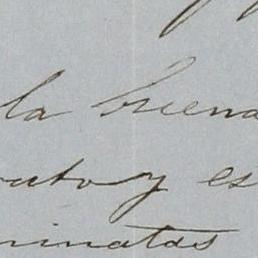 la buena
outo y es
minatas